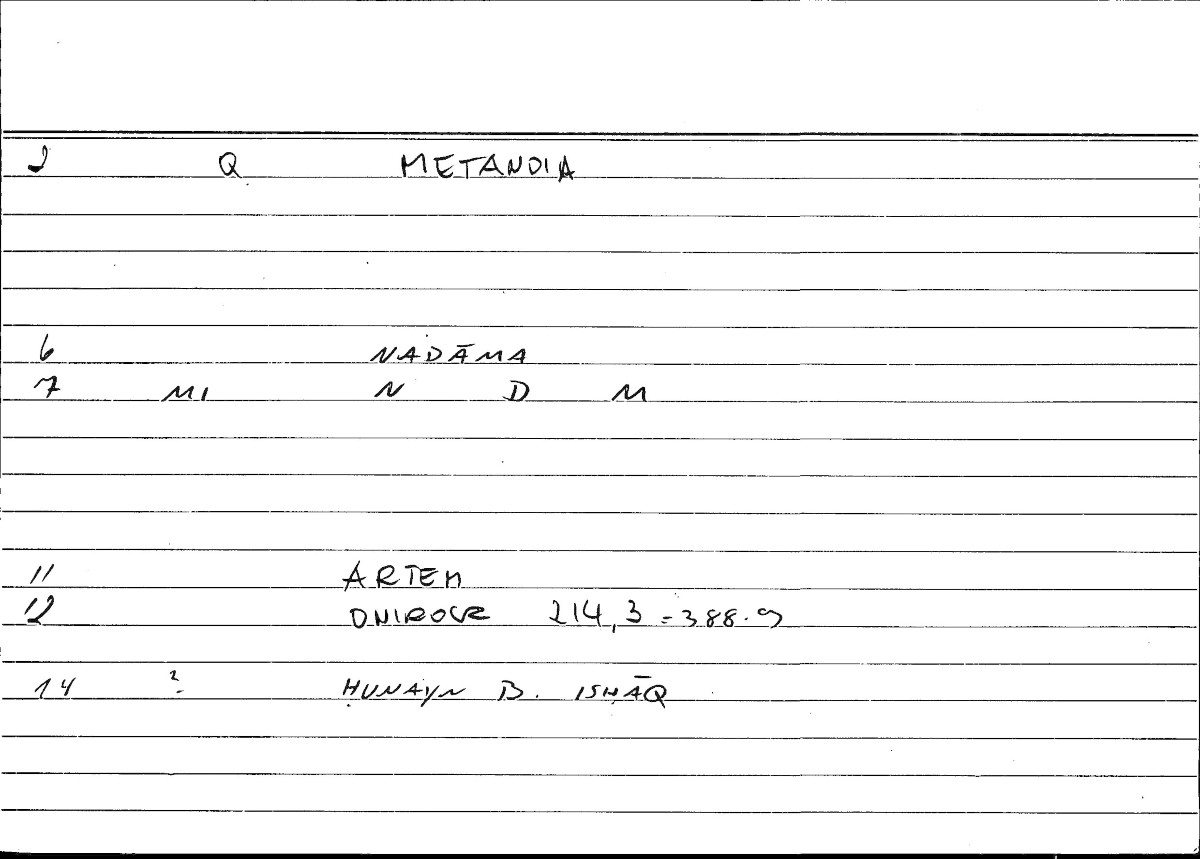 2 Q METANOIA
6 NADĀMA
7 MI N D M
11 ARTEM
12 ONIROCR 214,3 = 388.9
14 2 ḤUNAYN B. ISḤĀQ